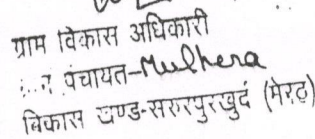 ग्राम विकास अधिकारी
पंचायत-Mulhera
बिकास खण्ड-सरुरपुरखुर्द (मेरठ)